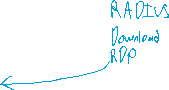 RADIUS
Download
RDP